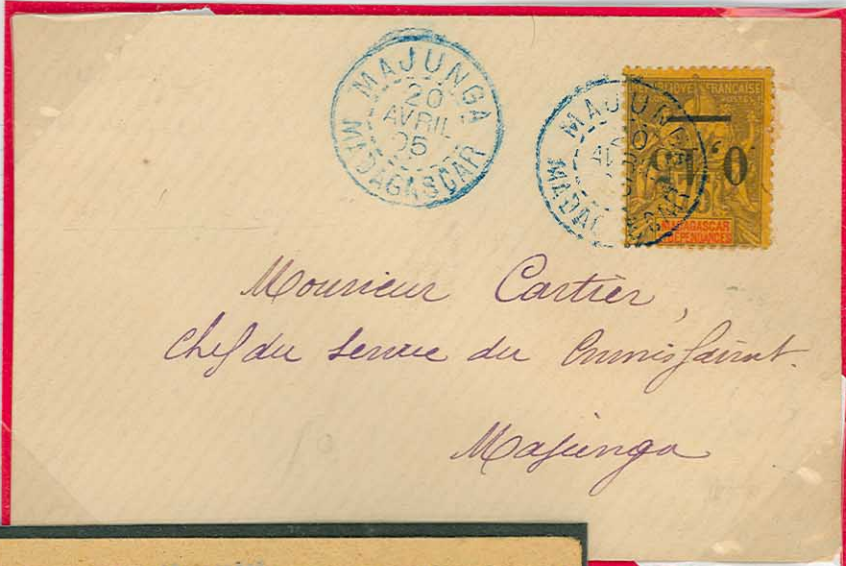 MAJUNGA
20
AVRIL
05
MADAGASCAR
MAJUNG
20
MADA
RÉPUBLIQUE FRANÇAISE
POSTES
0,15
MADAGASCAR
DÉPENDANCES
Monsieur Cartier,
Chef du Service du Commissariat.
Majunga